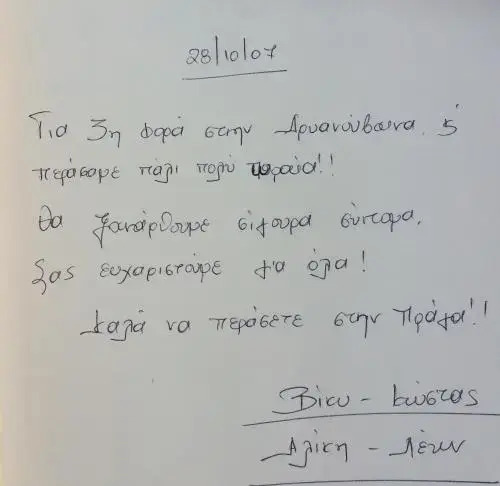 28/10/07
Για 3η φορά στην Αρυανούβωνα, &
περάσαμε πάλι πολύ ωραία!!
Θα ξανάρθουμε σίγουρα σύντομα.
Σας ευχαριστούμε για όλα!
Καλά να περάσετε στην Πράγα!!
Βίκυ - Κώστας
Αλίκη -